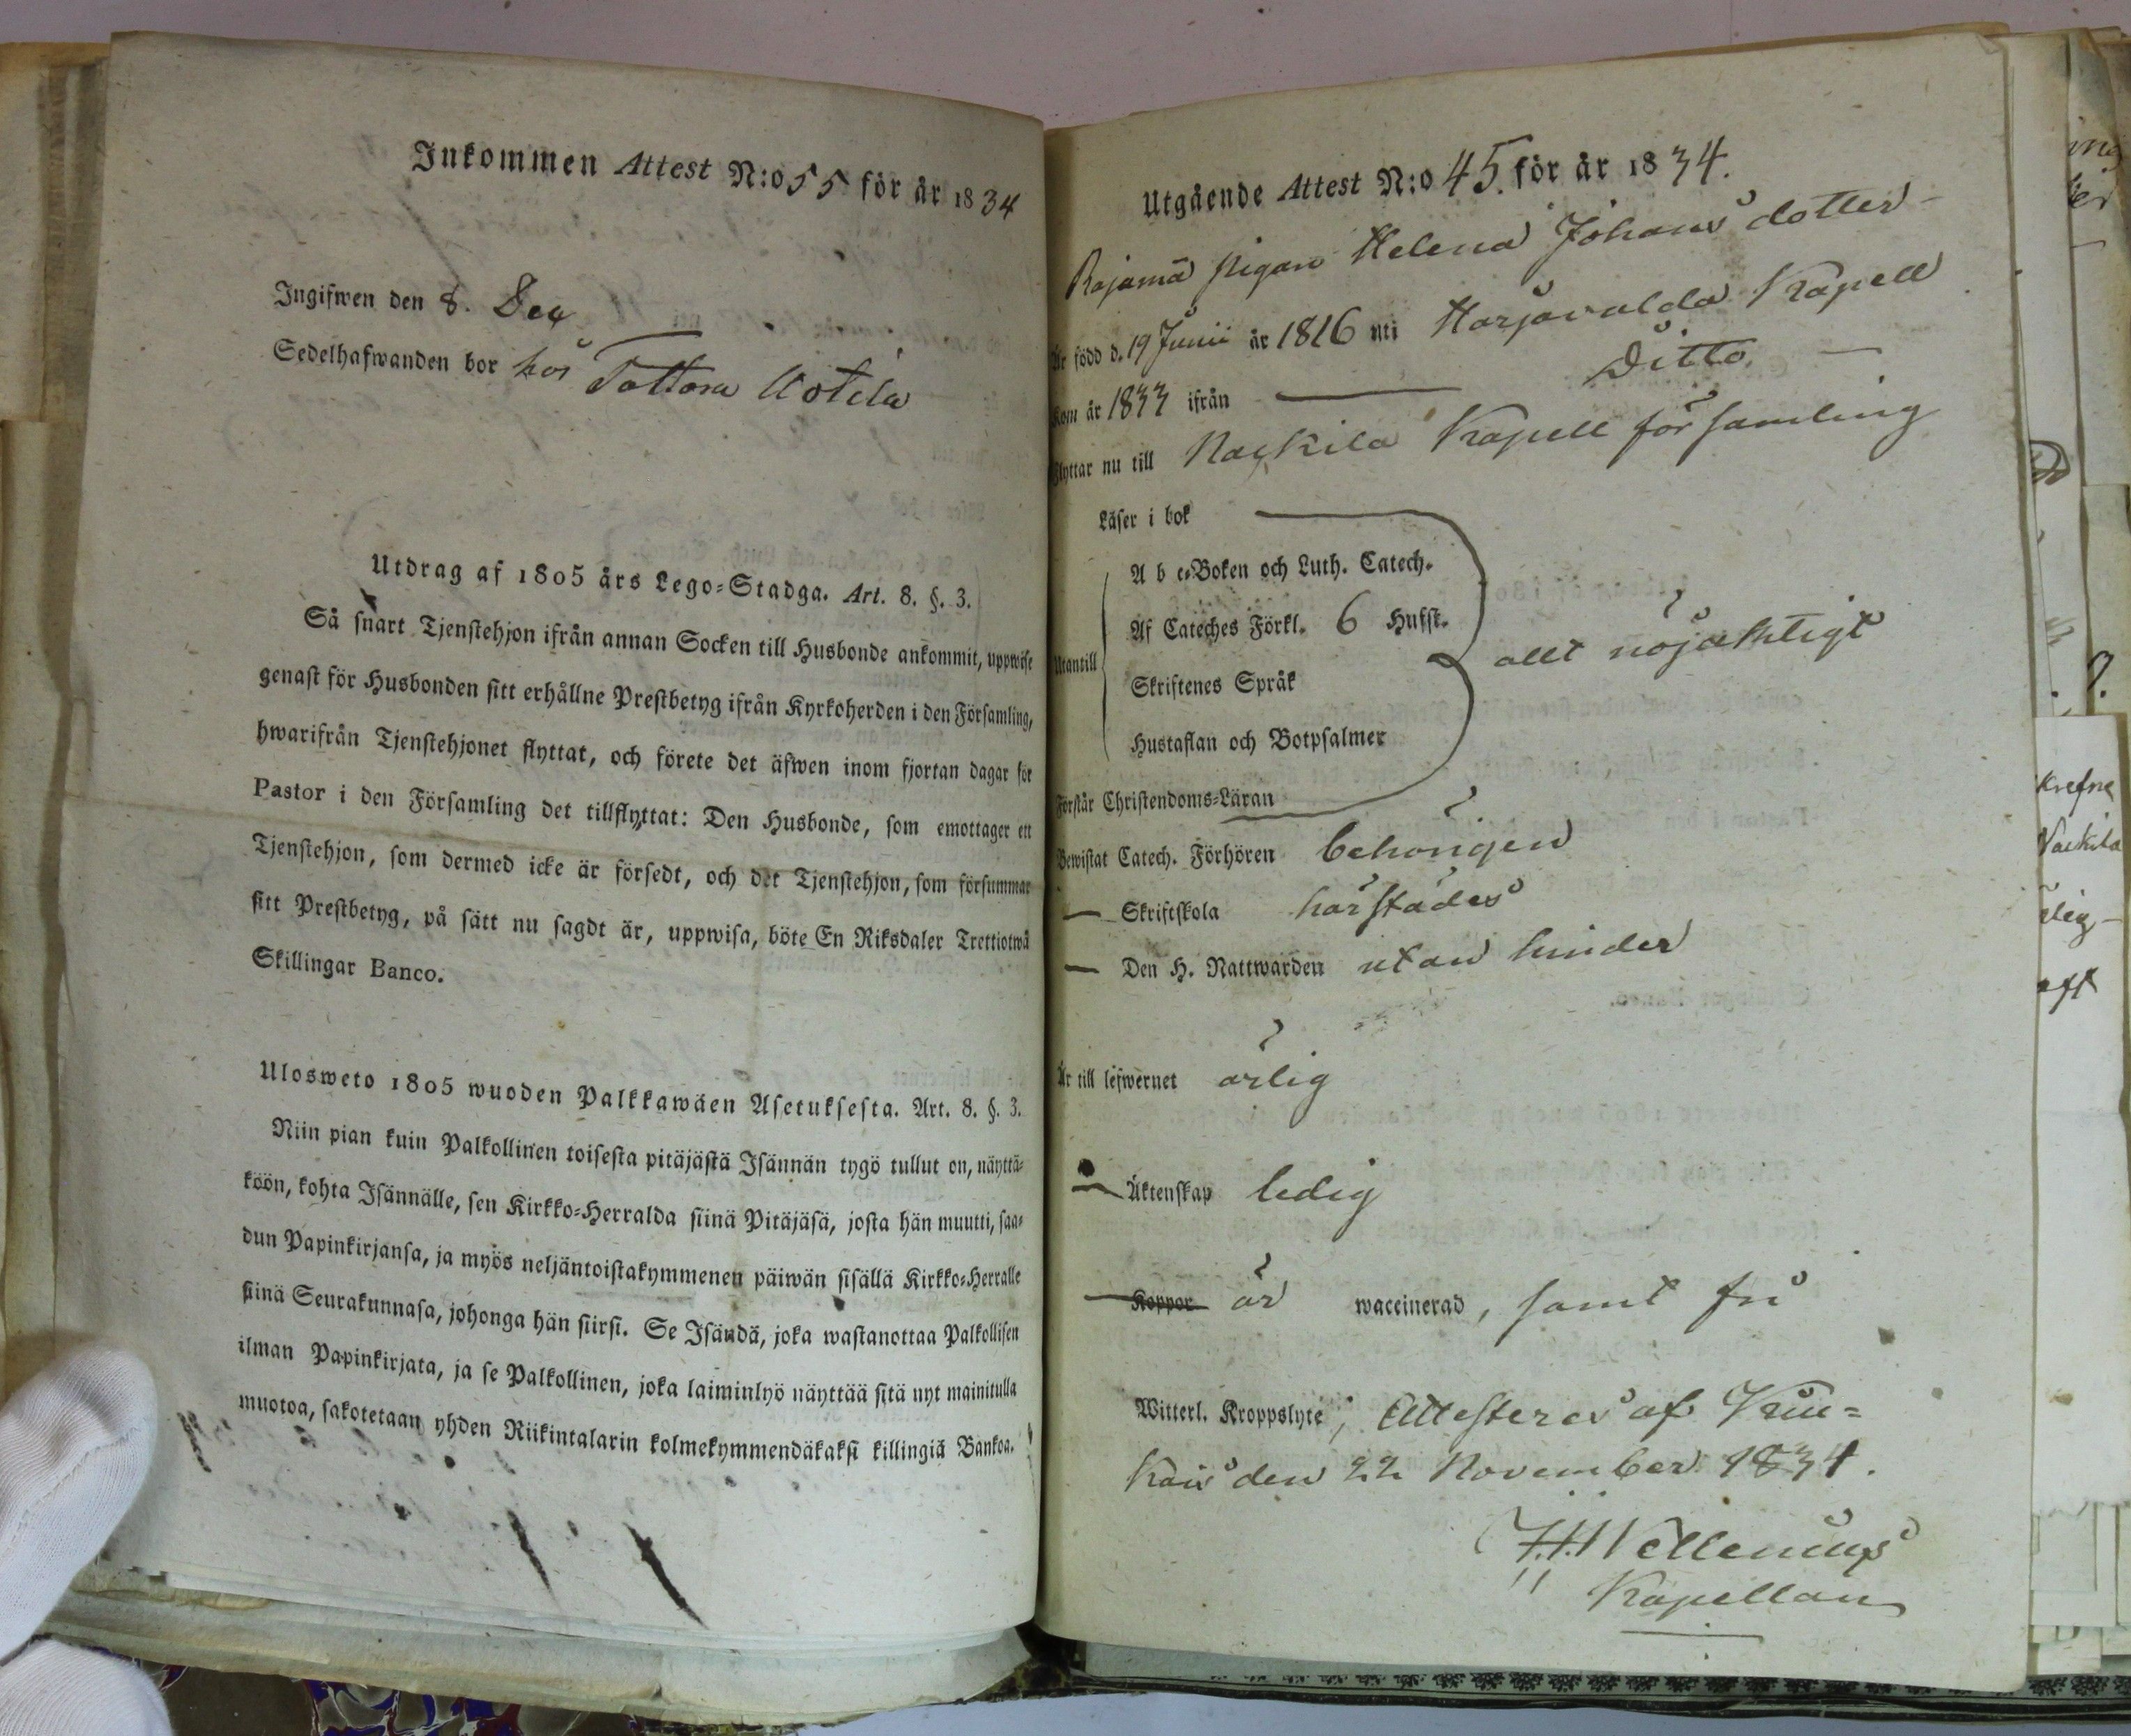 Inkommen Attest N:o 55 för år 1834
Ingifwen den 8. Dec
Sedelhafwanden bor hos Tattara Uotila
Utdrag af 1805 års Lego-Stadga. Art. 8. §. 3.
Så snart Tjenstehjon ifrån annan Socken till Husbonde ankommit, uppwise
genast för Husbonden sitt erhållne Prestbetyg ifrån Kyrkoherden i den Församling,
hwarifrån Tjenstehjonet flyttat, och förete det äfwen inom fjortan dagar för
Pastor i den Församling det tillflyttat: Den Husbonde, som emottager ett
Tjenstehjon, som dermed icke är försedt, och det Tjenstehjon, som försummar
sitt Prestbetyg, på sätt nu sagdt är, uppwisa, böte En Riksdaler Trettiotwå
Skillingar Banco.
Ulosweto 1805 wuoden Palkkawäen Asetuksesta. Art. 8. §. 3.
Niin pian kuin Palkollinen toisesta pitäjästä Isännän tygö tullut on, näyttä-
köön, kohta Isännälle, sen Kirkko-Herralda siinä Pitäjäsä, josta hän muutti, saa-
dun Papinkirjansa, ja myös neljäntoistakymmenen päiwän sisällä Kirkko-Herralle
siinä Seurakunnasa, johonga hän siirsi. Se Isändä, joka wastanottaa Palkollisen
ilman Papinkirjata, ja se Palkollinen, joka laiminlyö näyttää sitä nyt mainitulla
muotoa, sakotetaan yhden Riikintalarin kolmekymmendäkaksi killingiä Bankoa.
Utgående Attest N:o 45. för år 1834.
Rajamä pigan Helena Johansdotter
Är född d. 19 Junii år 1816 uti Harjavalda Kapell
Kom år 1833 ifrån — Ditto. —
Flyttar nu till Nackila Kapell församling
Läser i bok
A b c-Boken och Luth. Catech.
Af Cateches Förkl. 6 Hufst.
Utantill
allt nöjaktigt
Skriftenes Språk
Hustaflan och Botpsalmer
Förstår Christendoms-Läran
Bewistat Catech. Förhören behörigen
— Skriftskola härstädes
— Den H. Nattwarden utan hinder
Är till lefwernet ärlig
— Äktenskap ledig
Koppor är waccinerad, samt fri
Witterl. Kroppslyte; Attesteras af Kiu-
kais den 22 November 1834.
Kapellan
krefne
Nackila